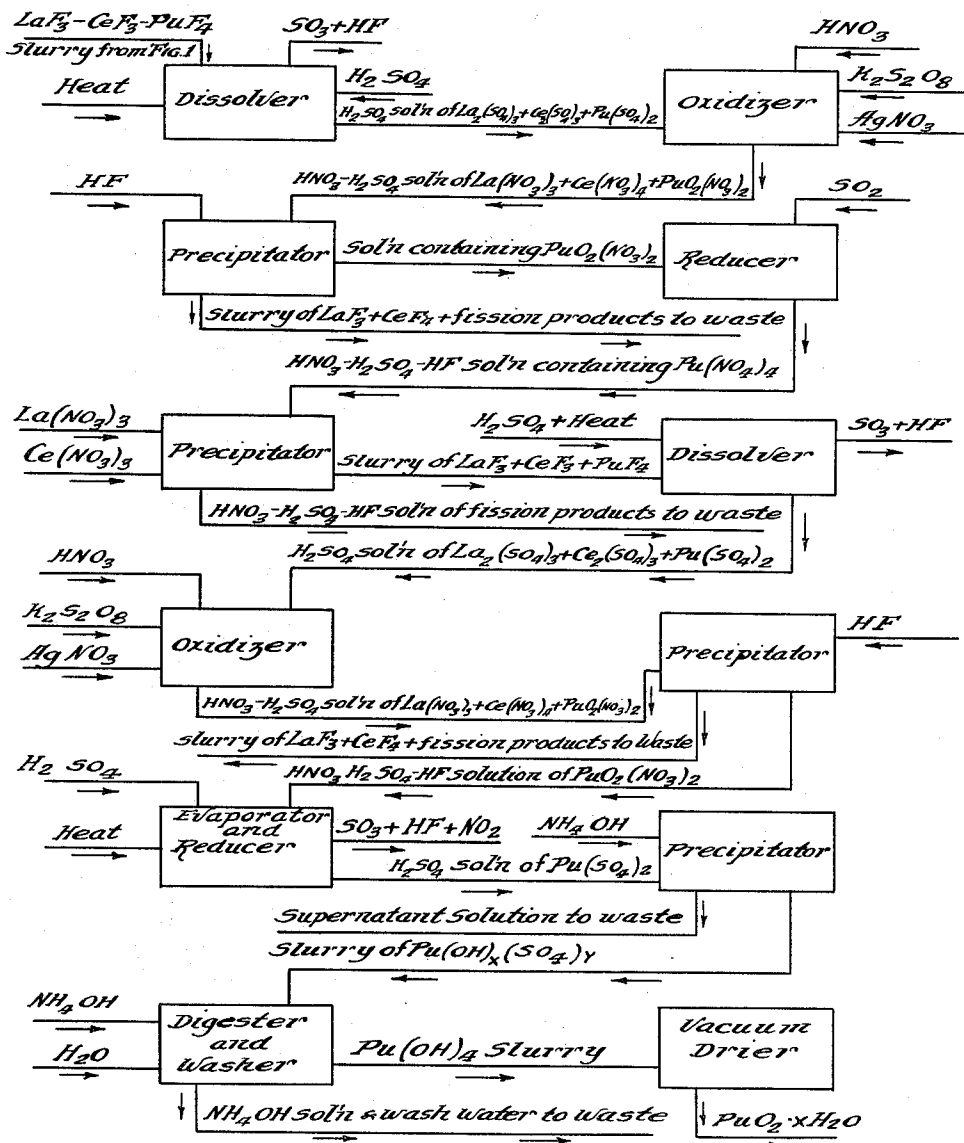 LaF3-CeF3-PuF4
Slurry from FIG.1
SO3+HF
HNO3
Heat
Dissolver
H2SO4
Oxidizer
K2S2O8
H2SO4 sol'n of La2(SO4)3+Ce2(SO4)3+Pu(SO4)2
AgNO3
HNO3-H2SO4 sol'n of La(NO3)3+Ce(NO3)4+PuO2(NO3)2
HF
SO2
Precipitator
Sol'n containing PuO2(NO3)2
Reducer
Slurry of LaF3+CeF4+fission products to waste
HNO3-H2SO4-HF sol'n containing Pu(NO4)4
La(NO3)3
H2SO4+Heat
SO3+HF
Ce(NO3)3
Precipitator
Slurry of LaF3+CeF3+PuF4
Dissolver
HNO3-H2SO4-HF sol'n of fission products to waste
H2SO4 sol'n of La2(SO4)3+Ce2(SO4)3+Pu(SO4)2
HNO3
K2S2O8
Oxidizer
Precipitator
HF
AgNO3
HNO3-H2SO4 sol'n of La(NO3)3+Ce(NO3)4+PuO2(NO3)2
Slurry of LaF3+CeF4+fission products to Waste
H2SO4
HNO3 H2SO4-HF solution of PuO2(NO3)2
Heat
Evaporator
and
Reducer
SO3+HF+NO2
NH4OH
Precipitator
H2SO4 sol'n of Pu(SO4)2
Supernatant Solution to waste
Slurry of Pu(OH)x(SO4)Y
NH4OH
Digester
and
Washer
Vacuum
Drier
H2O
Pu(OH)4 Slurry
NH4OH sol'n & wash water to waste
PuO2·xH2O